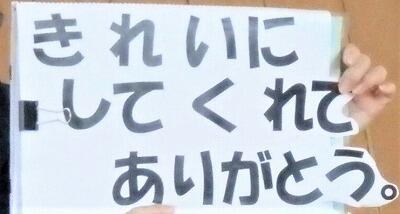 きれいに
してくれて
ありがとう。